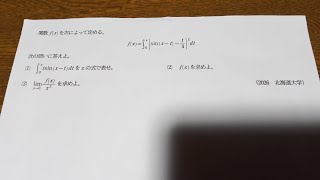 関数 f(x) を次によって定める。
f(x)=∫₀ˣ {sin(x−t)−t/π}² dt
次の問いに答えよ。
① ∫₀ˣ tsin(x−t)dt を x の式で表せ。 ② f(x) を求めよ。
③ lim f(x)/x³ を求めよ。 (2026 北海道大学)